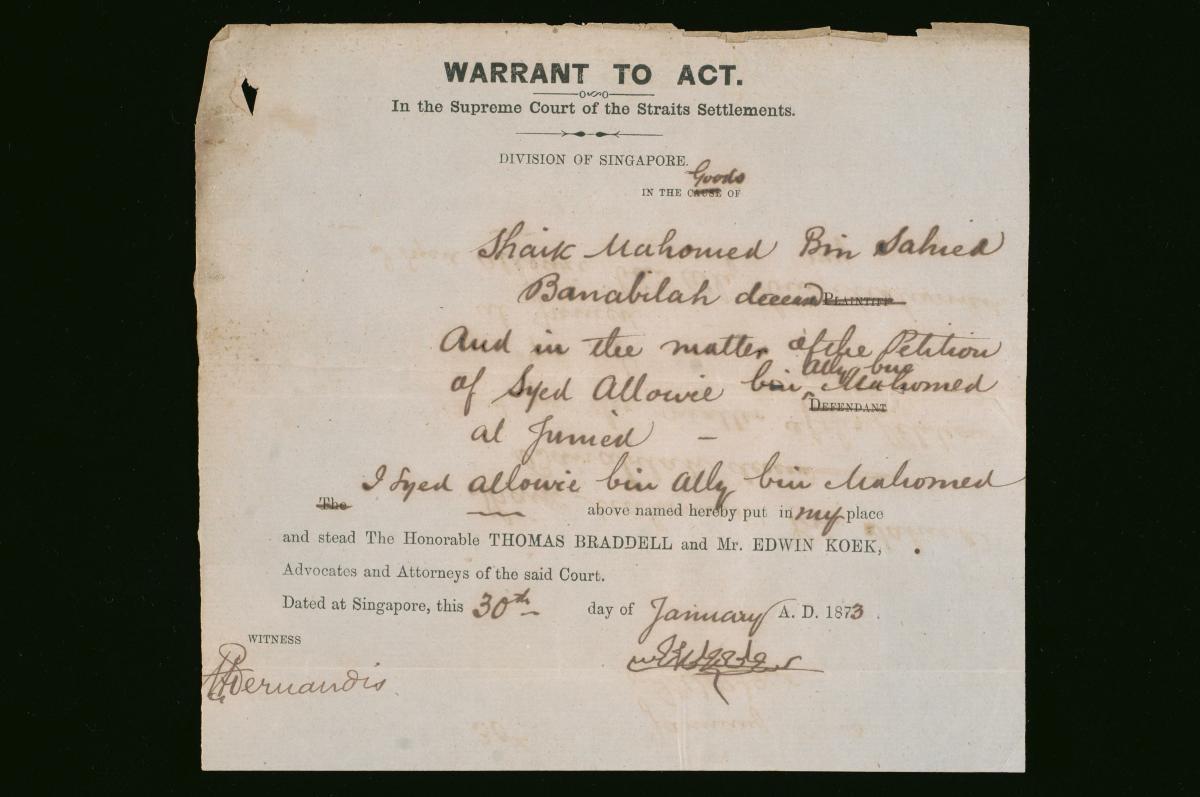 WARRANT TO ACT.
In the Supreme Court of the Straits Settlements.
DIVISION OF SINGAPORE.
Goods
IN THE CAUSE OF
Shaik Mahomed Bin Sahied
Banabilah deceased PLAINTIFF
And in the matter of the Petition
Ally bin
of Syed Allowie bin Mahomed
DEFENDANT
al Junied —
I Syed allowie bin Ally bin Mahomed
The above named hereby put in my place
and stead The Honorable THOMAS BRADDELL and Mr. EDWIN KOEK,
Advocates and Attorneys of the said Court.
Dated at Singapore, this 30th day of January A. D. 1873.
WITNESS